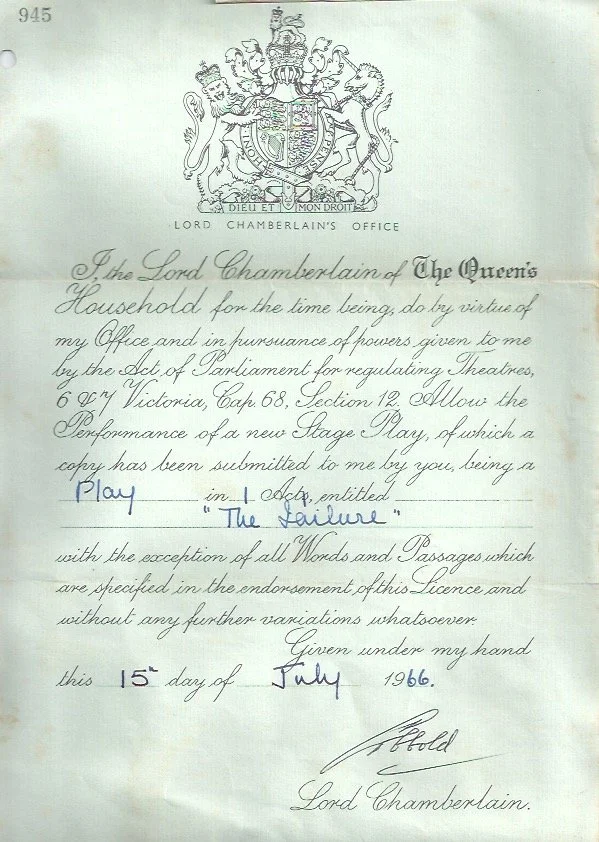 945
DIEU ET MON DROIT
LORD CHAMBERLAIN'S OFFICE
I, the Lord Chamberlain of The Queen's
Household for the time being, do by virtue of
my Office and in pursuance of powers given to me
by the Act of Parliament for regulating Theatres,
6 & 7 Victoria, Cap. 68, Section 12. Allow the
Performance of a new Stage Play, of which a
copy has been submitted to me by you, being a
Play in 1 Acts, entitled
"The Failure"
with the exception of all Words and Passages which
are specified in the endorsement of this Licence and
without any further variations whatsoever.
Given under my hand
this 15th day of July 1966.
Cobbold
Lord Chamberlain.